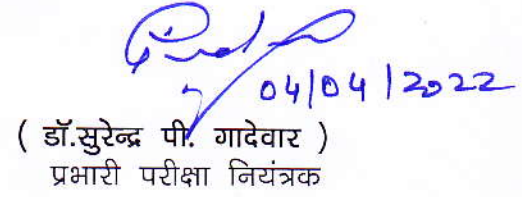 04/04/2022
( डॉ.सुरेन्द्र पी. गादेवार )
प्रभारी परीक्षा नियंत्रक